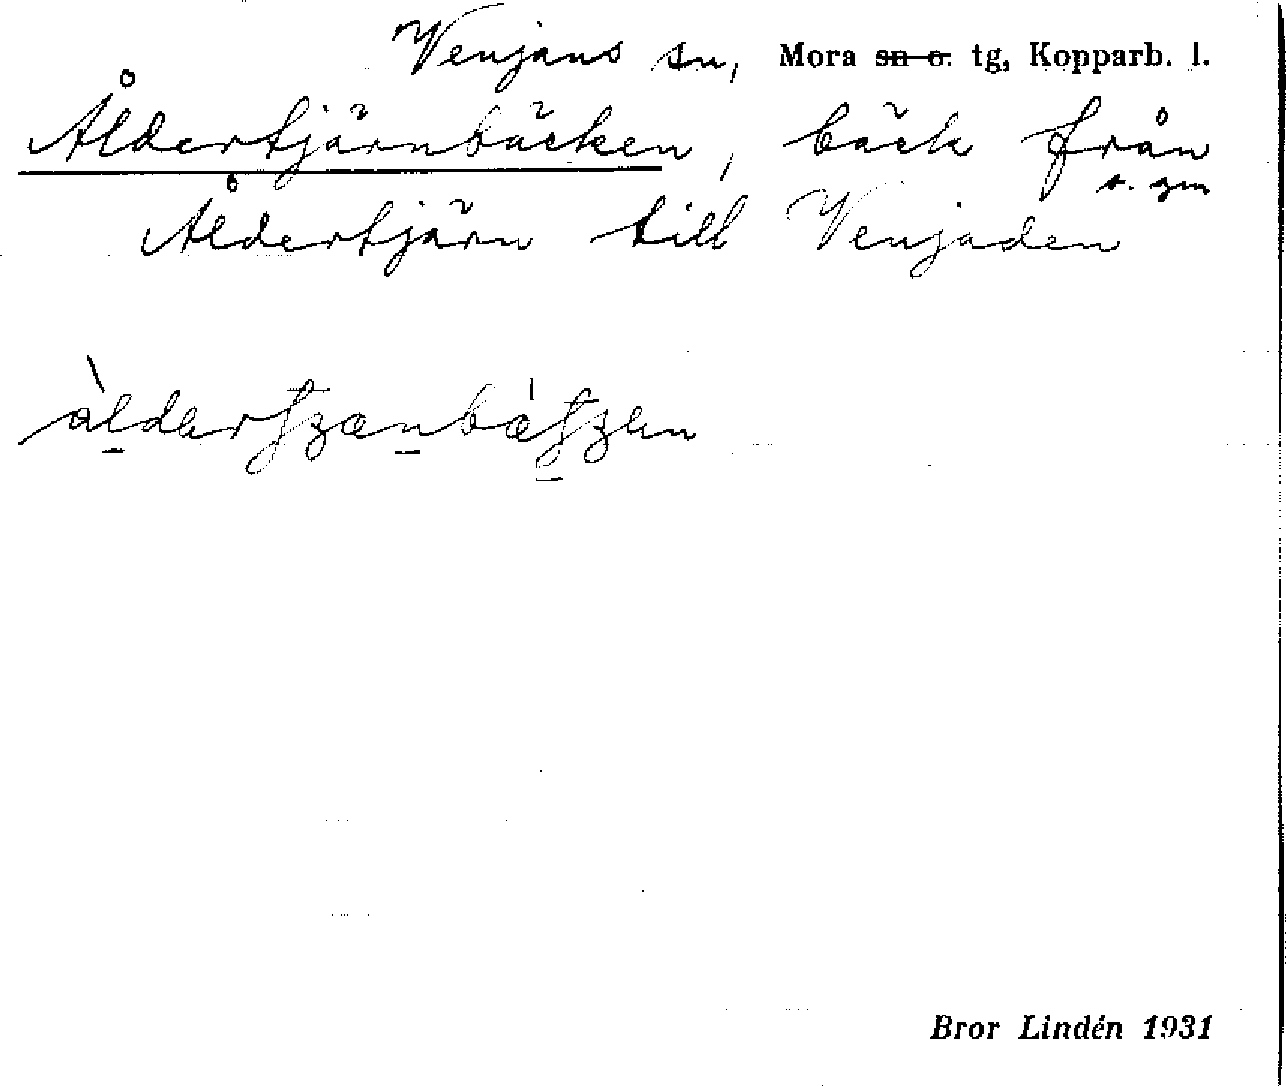 Venjans sn, Mora sn o. tg, Kopparb. l.
Åldertjärnbäcken, bäck från
Åldertjärn till Venjaden
Bror Lindén 1931